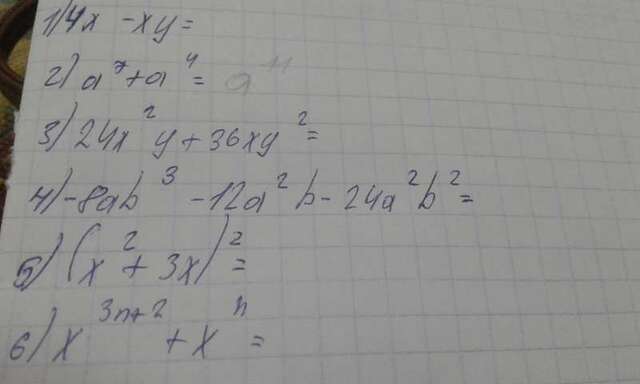 1) 4x - xy =
2) a⁷ + a⁴ = a¹¹
3) 24x²y + 36xy² =
4) -8ab³ - 12a²b - 24a²b² =
5) (x² + 3x)² =
6) x³ⁿ⁺² + xⁿ =